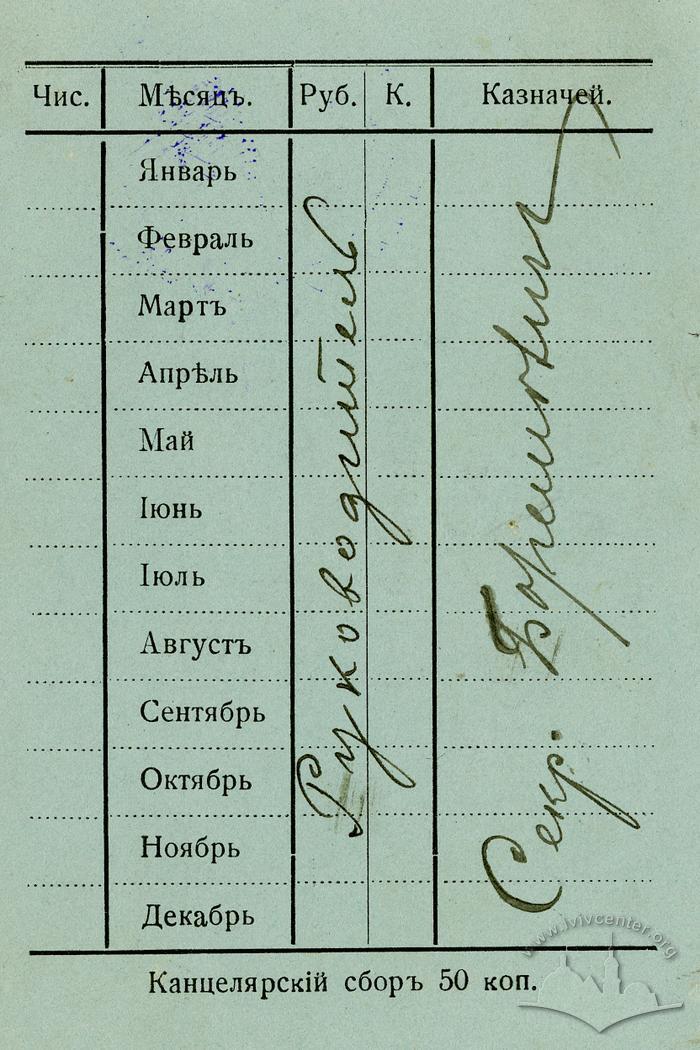 Чис. Мѣсяцъ. Руб. К. Казначей.
Январь
Февраль
Мартъ
Апрѣль
Май
Іюнь
Іюль
Августъ
Сентябрь
Октябрь
Ноябрь
Декабрь
Руководитель
Секр.
Канцелярскій сборъ 50 коп.
www.lvivcenter.org